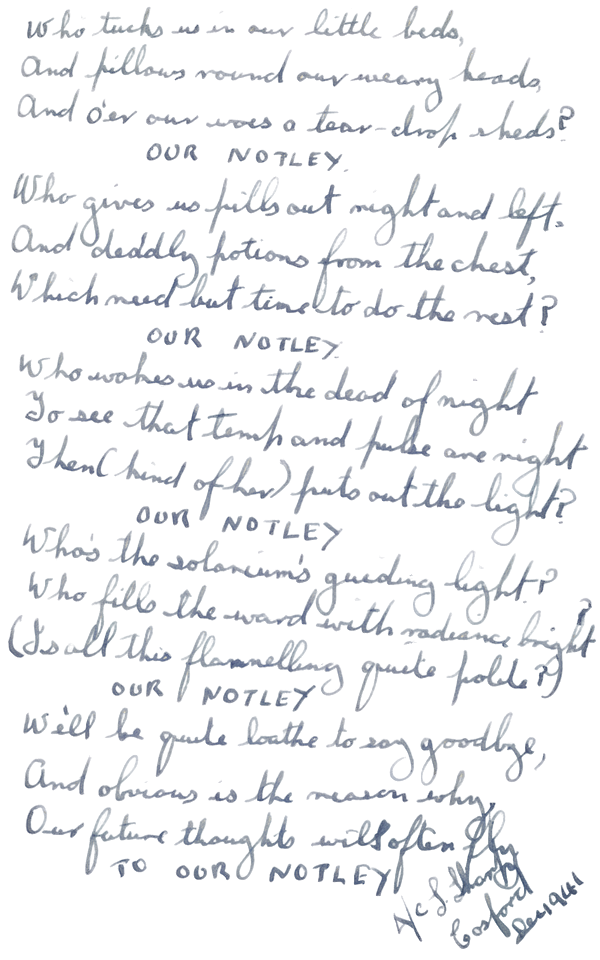 Who tucks us in our little beds,
And pillows round our weary heads,
And o'er our woes a tear-drop sheds?
OUR NOTLEY.
Who gives us pills out right and left.
And deaddly potions from the chest,
Which need but time to do the rest?
OUR NOTLEY.
Who wakes us in the dead of night
To see that temp and pulse are right
Then (kind of her) puts out the light?
OUR NOTLEY
Who's the solarium's guiding light?
Who fills the ward with radiance bright?
(Is all this flannelling quite polite?)
OUR NOTLEY
We'll be quite loathe to say goodbye,
And obvious is the reason why,
Our future thoughts will often fly
TO OUR NOTLEY
A/c
Cosford
Dec 1941